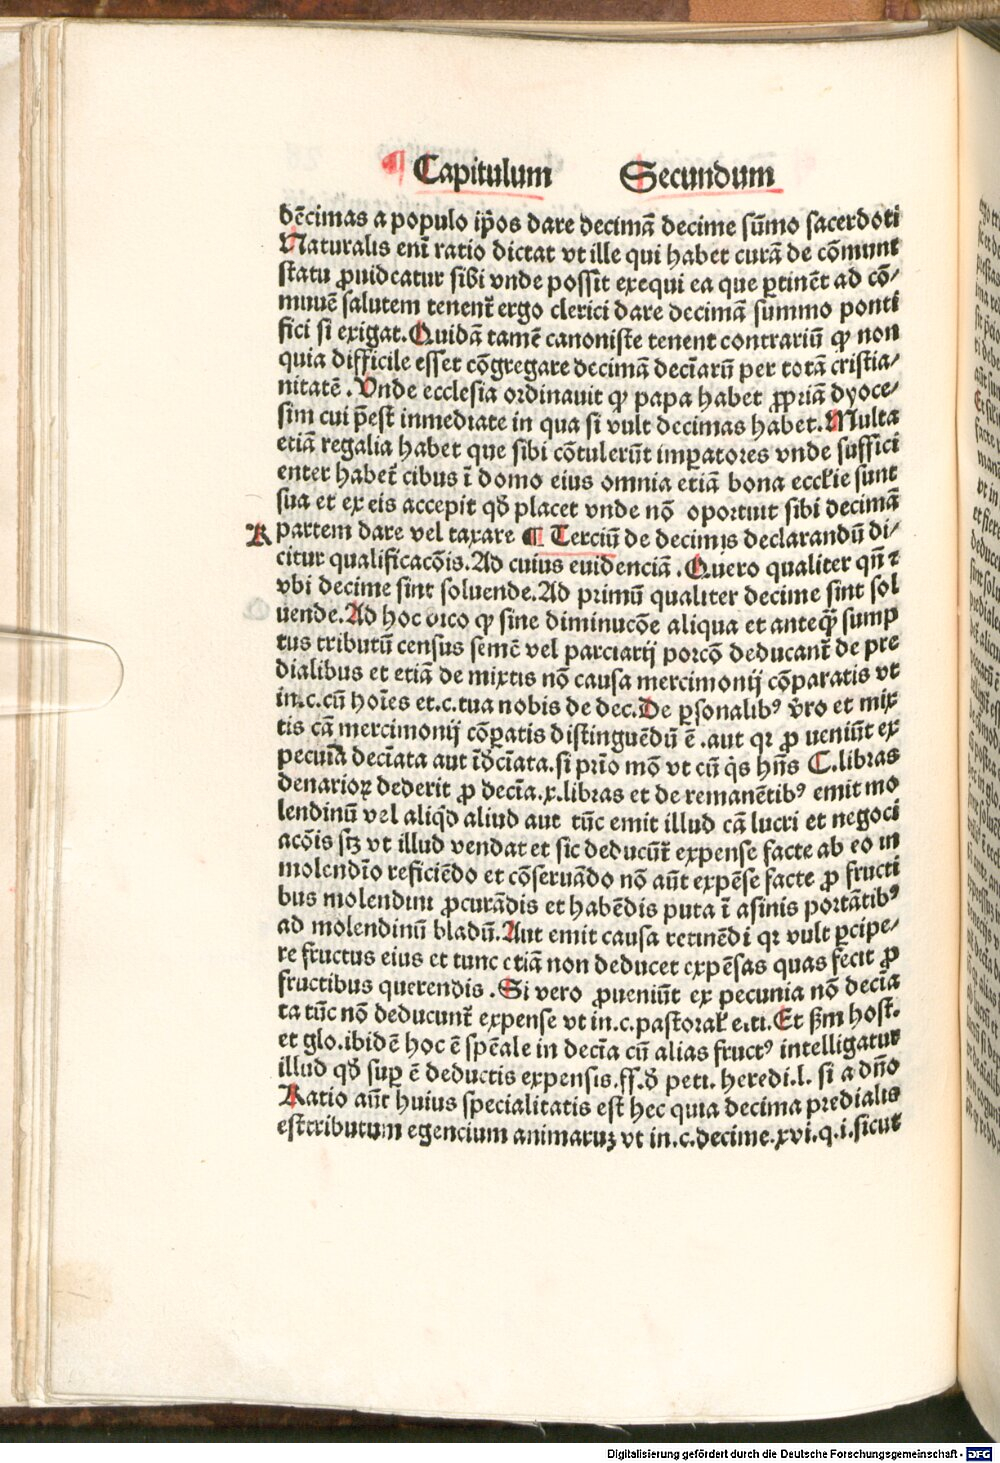 ¶ Capitulum Secundum
dēcimas a populo ip̄os dare decimā decime sūmo sacerdoti
Naturalis eni̅ ratio dictat vt ille qui habet curā de cōmuni
statu ꝓuideatur sibi vnde possit exequi ea que ꝑtinēt ad cō/
muuē salutem tenent̄ ergo clerici dare decimā summo ponti
fici si exigat. Quidā tamē canoniste tenent contrariū ꝙ non
quia difficile esset cōgregare decimā deci̅arū per totā cristia/
nitatē. Vnde ecclesia ordinauit ꝙ papa habet ꝓpriā dyoce/
sim cui p̄est inmediate in qua si vult decimas habet. Multa
etiā regalia habet que sibi cōtulerūt imꝑatores vnde suffici
enter habet̄ cibus ī domo eius omnia etiā bona eccłie sunt
sua et ex eis accepit qđ placet vnde nō oportuit sibi decimā
K partem dare vel taxare ¶ Terciū de decimis declarandū di/
citur qualificacōis. Ad cuius euidenciā. Quero qualiter qn̄ ⁊
vbi decime sint soluende. Ad primū qualiter decime sint sol
uende. Ad hoc dico ꝙ sine diminucōe aliqua et anteꝗ̄ sump
tus tributū census semē vel parciarij porcō deducant̄ de pre
dialibus et etiā de mixtis nō causa mercimonij cōparatis vt
in.c.cū hoi̅es et.c.tua nobis de dec. De ꝑsonalibꝰ v̄ro et mix
tis cā mercimonij cōꝑatis distinguēdū ē .aut qꝛ ꝓueniūt ex
pecunia deci̅ata aut īdeci̅ata. si pri̅o mō vt cū q̇s hn̄s C.libras
denarioꝝ dederit ꝓ deci̅a.x.libras et de remanētibꝰ emit mo
lendinū vel aliq̇d aliud aut tūc emit illud cā lucri et negoci
acōis scꝫ vt illud vendat et sic deducūt̄ expense facte ab eo in
molendi̅o reficiēdo et cōseruādo nō aūt expēse facte ꝓ fructi
bus molendini ꝓcurādis et habēdis puta ī asinis portātibꝰ
ad molendinū bladū. Aut emit causa retinēdi qꝛ vult ꝑcipe/
re fructus eius et tunc etiā non deducet expēsas quas fecit ꝓ
fructibus querendis. Si vero ꝓueniūt ex pecunia nō deci̅a
ta tūc nō deducunt̄ expense vt in.c.pastoral̄ e.ti. Et ẜm host.
et glo.ibidē hoc ē spēale in deci̅a cū alias fructꝰ intelligatur
illud qđ suꝑ ē deductis expensis.ff.đ peti. heredi.l. si a dn̄o
Ratio aūt huius specialitatis est hec quia decima predialis
est tributum egencium animaruꝫ vt in.c.decime.xvi.q.i.sicut
Digitalisierung gefördert durch die Deutsche Forschungsgemeinschaft - DFG